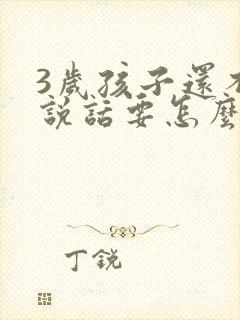 3歲孩子還不
說話要怎麼
丁銳